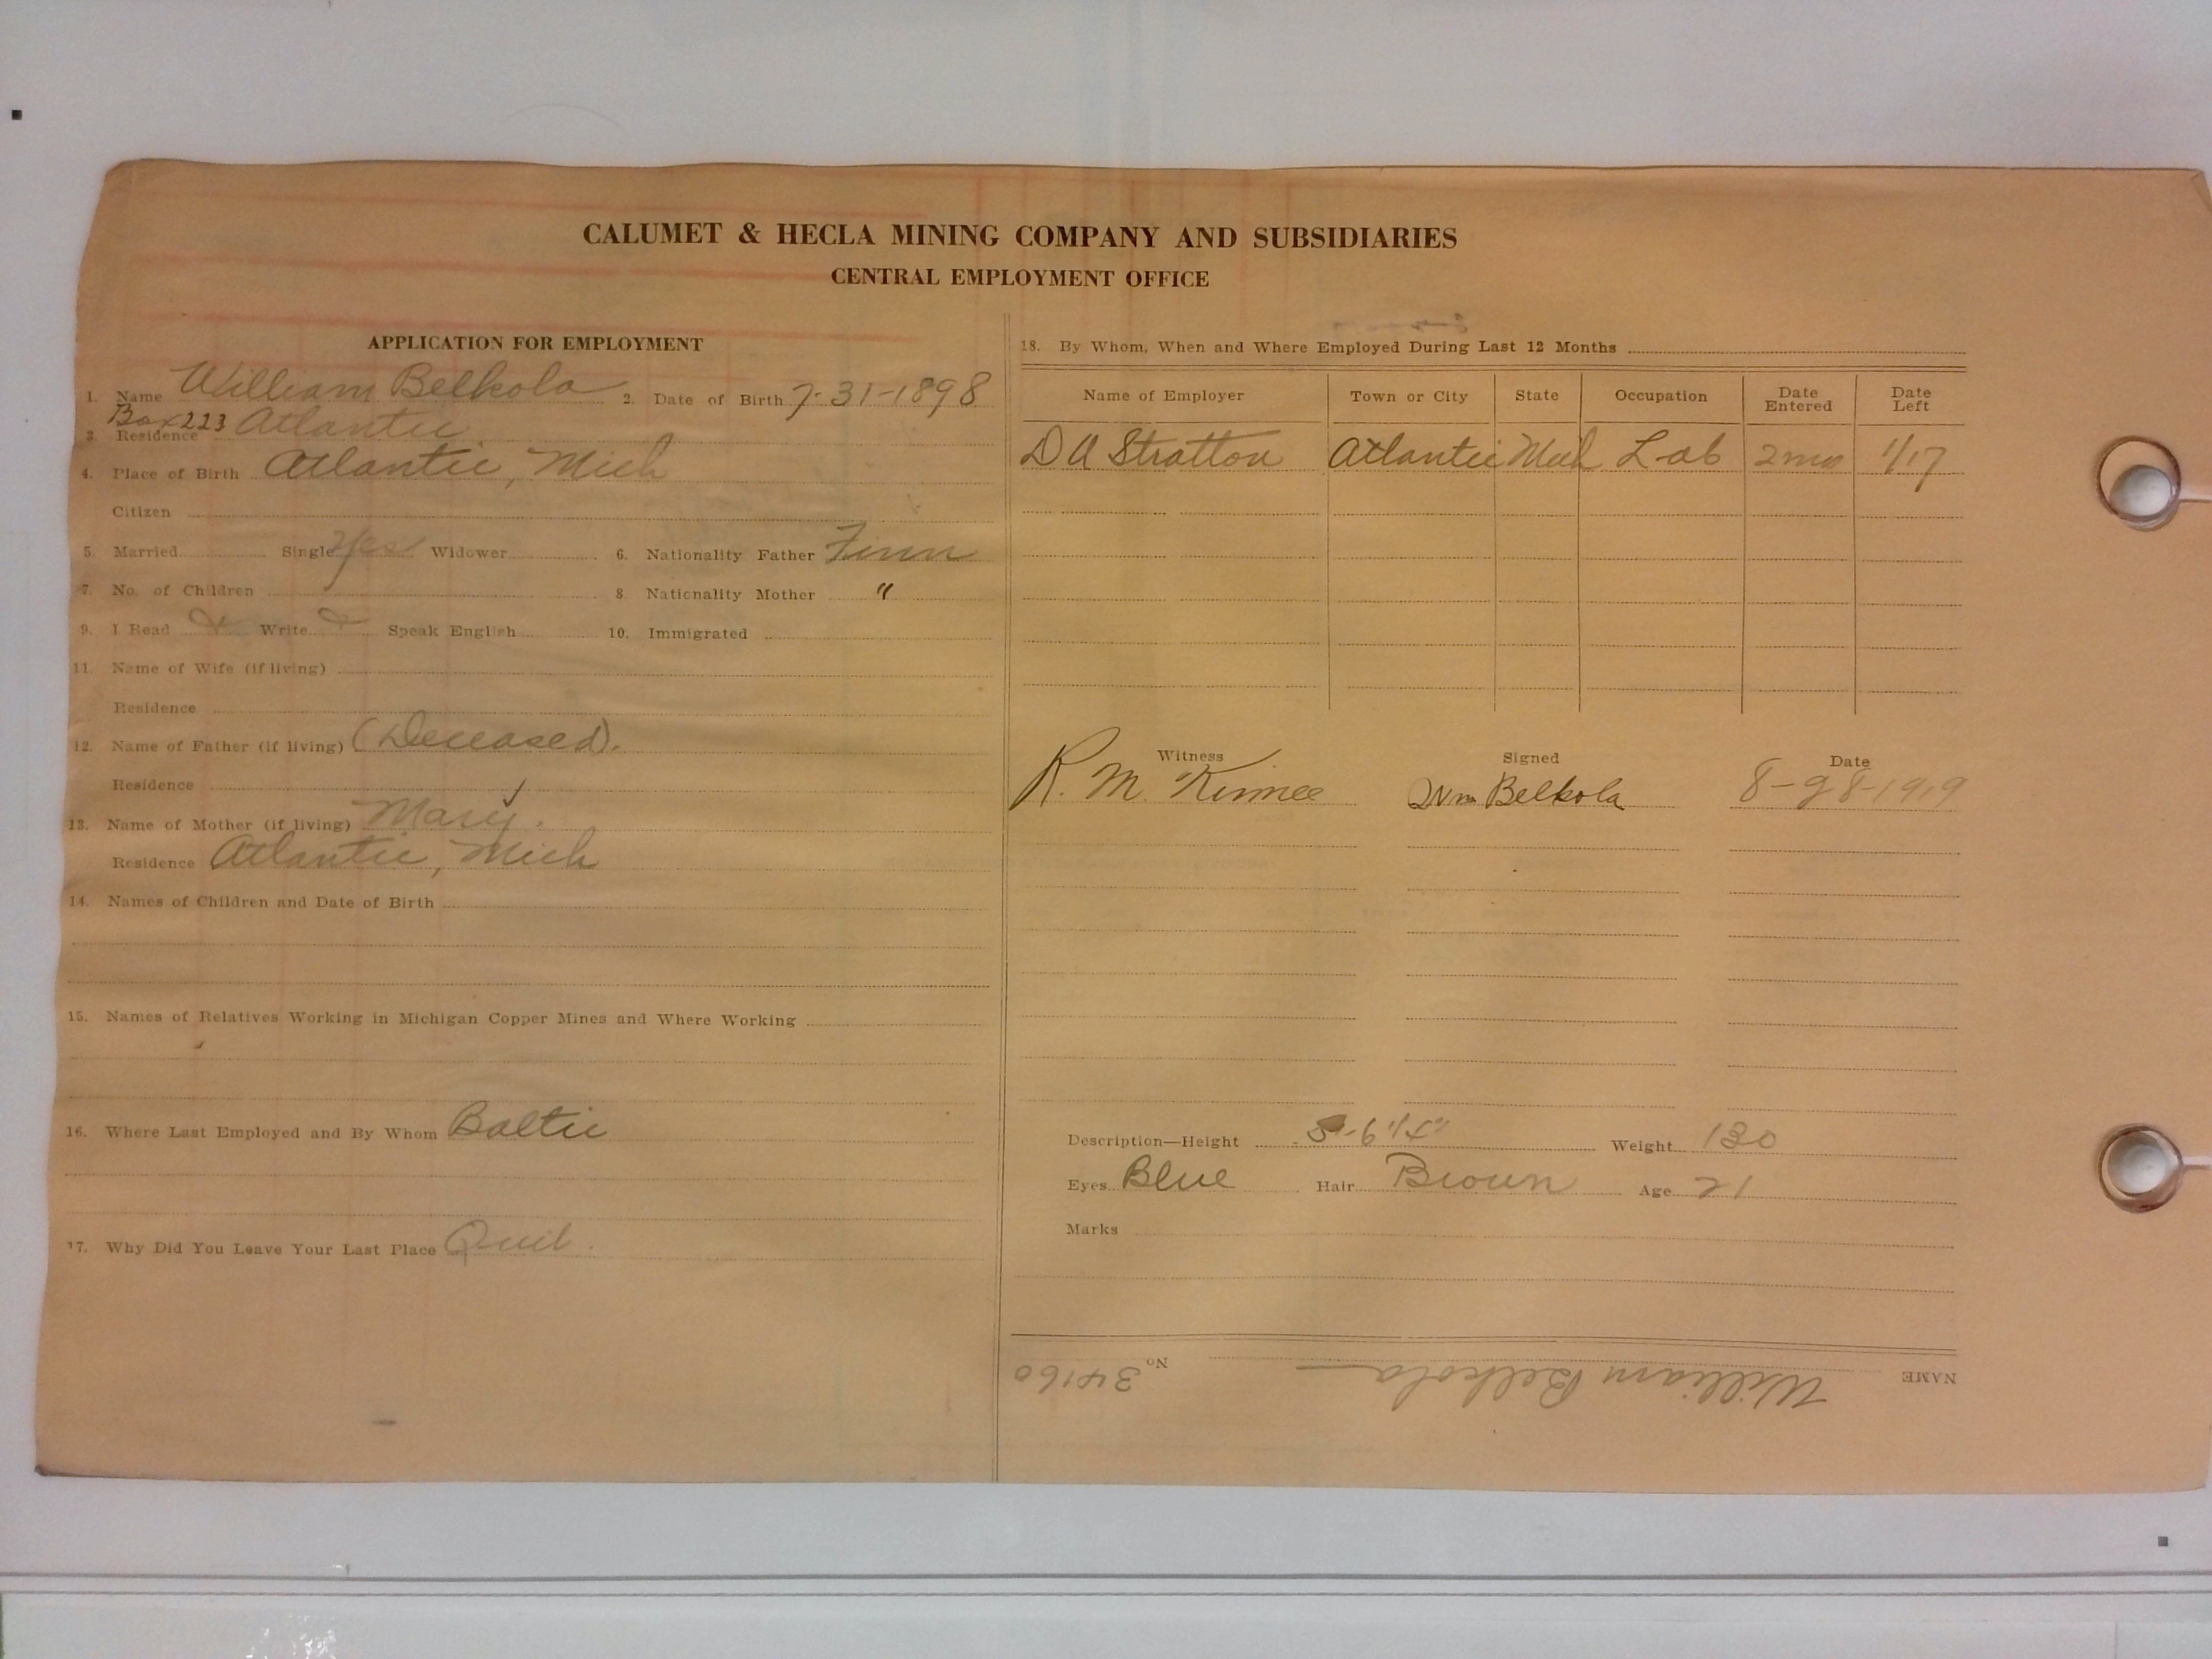 CALUMET & HECLA MINING COMPANY AND SUBSIDIARIES
CENTRAL EMPLOYMENT OFFICE
APPLICATION FOR EMPLOYMENT
1. Name William Belkola 2. Date of Birth 7-31-1898
Box 223 Atlantic
3. Residence
4. Place of Birth Atlantic, Mich
Citizen
5. Married Single Yes Widower 6. Nationality Father Finn
7. No. of Children 8. Nationality Mother "
9. I Read Write Speak English 10. Immigrated
11. Name of Wife (if living)
Residence
12. Name of Father (if living) (Deceased).
Residence
13. Name of Mother (if living) Mary.
Residence Atlantic, Mich
14. Names of Children and Date of Birth
15. Names of Relatives Working in Michigan Copper Mines and Where Working
16. Where Last Employed and By Whom Baltic
17. Why Did You Leave Your Last Place Quit.
18. By Whom, When and Where Employed During Last 12 Months
Name of Employer Town or City State Occupation Date Entered Date Left
D A Stratton Atlantic Mich Lab 2 mos 1/17
Witness Signed Date
R. M. Wm Belkola 8-28-1919
Description—Height 5'-6 1/4" Weight 130
Eyes Blue Hair Brown Age 21
Marks
NAME William Belkola No 34160